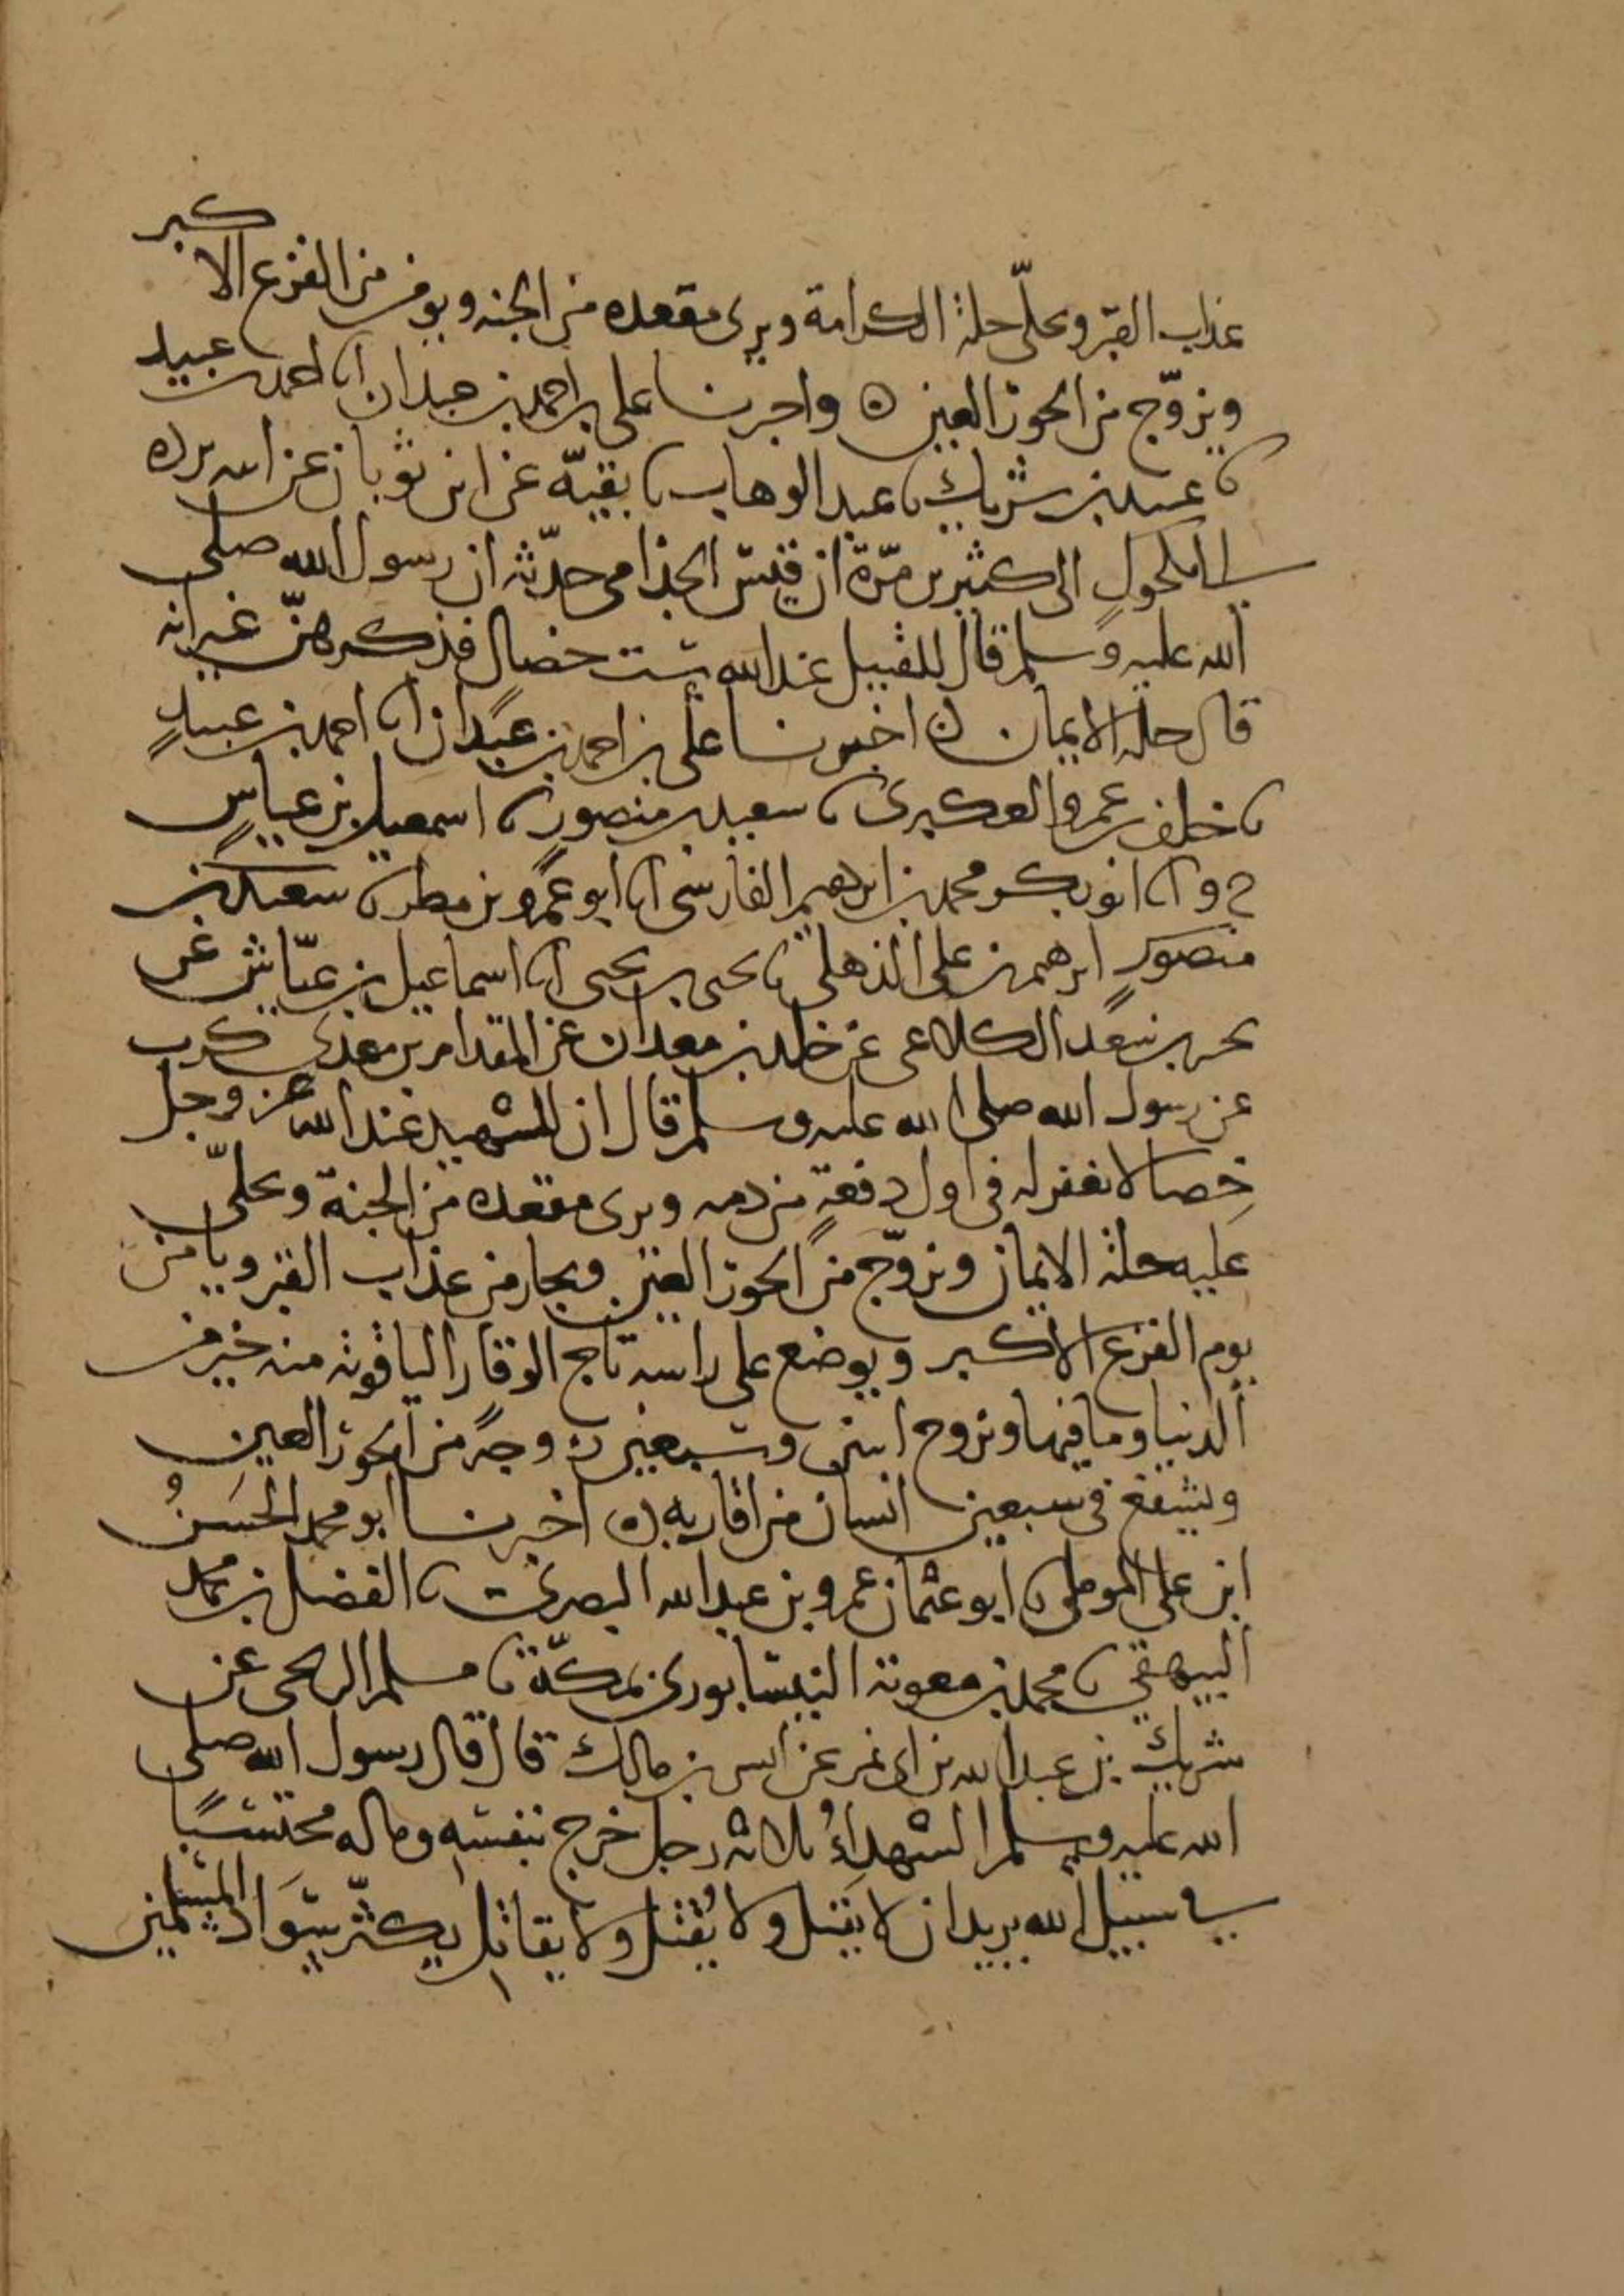 عذاب القبر ويحلّى حلة الكرامة ويرى مقعده من الجنه ويومن من الفزع الاكبر
ويزوّج من الحور العين ه واخبرنا على بن احمد بن عبدان انا احمد بن عبيد
نا عبيد بن شريك نا عبد الوهاب نا بقيّه عن ابن ثوبان عن ابيه يرده
الى مكحول الى كثير بن مرّة ان قيس الجذامى حدّثه ان رسول الله صلى
الله عليه وسلم قال للقتيل عند الله ست خصال فذكرهنّ غير انه
قال حلة الايمان ه اخبرنا على بن احمد بن عبدان انا احمد بن عبيد
نا خلف بن عمرو العكبرى نا سعيد بن منصور نا اسمعيل بن عياش
ح وانا ابو بكر محمد بن ابرهيم الفارسى انا ابو عمرو بن مطر نا سعيد بن
منصور ابرهيم بن على الذهلى نا يحيى بن يحيى انا اسماعيل بن عيّاش عن
بحير بن سعد الكلاعى عن خلد بن معدان عن المقدام بن معدى كرب
عن رسول الله صلى الله عليه وسلم قال ان للشهيد عند الله عز وجل
خصالا يغفر له فى اول دفعة من دمه ويرى مقعده من الجنة ويحلّى
عليه حلة الايمان ويزوّج من الحور العين ويجار من عذاب القبر ويامن
يوم الفزع الاكبر ويوضع على راسه تاج الوقار الياقوته منه خير من
الدنيا وما فيها ويزوج اثنين وسبعين زوجة من الحور العين
ويشفع فى سبعين انسان من اقاربه ه اخبرنا ابو محمد الحسنُ
ابن على الموملى نا ابو عثمان عمرو بن عبد الله البصرى نا الفضل بن محمد
البيهقى نا محمد بن معوية النيسابورى بمكّة نا مسلم الزنجى عن
شريك بن عبد الله بن ابى نمر عن انس بن مالك قال قال رسول الله صلى
الله عليه وسلم الشهداءُ ثلاثة رجل خرج بنفسه وماله محتسبًا
فى سبيل الله يريد ان لا يَقتل ولا يُقتل ولا يقاتل يكثّر سَوَاد المسلمين